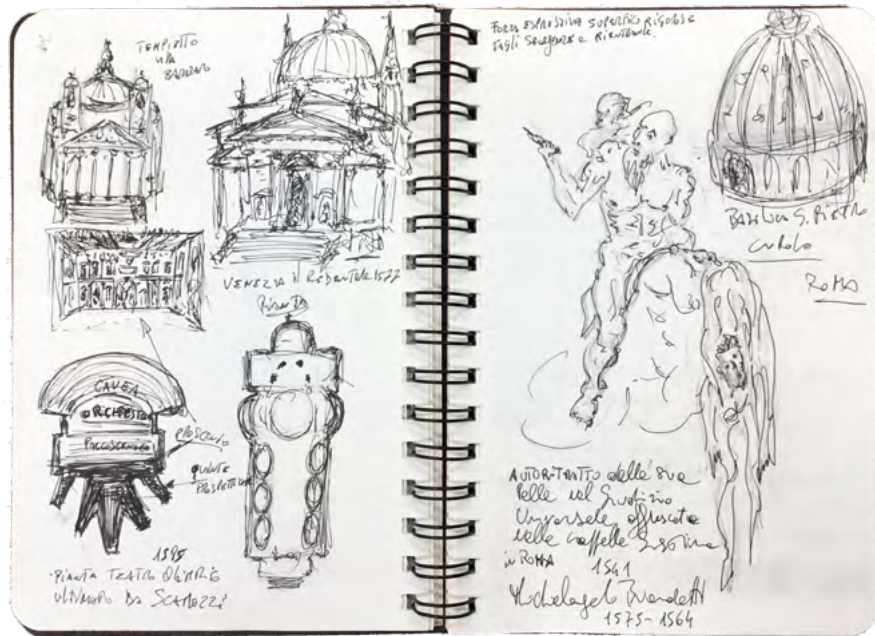 TEMPIETTO
VILLA
BARBARO
VENEZIA il REDENTORE 1577
PIANTA
CAVEA
ORCHESTRA
PALCOSCENICO
PROSCENIO
QUINTE
PROSPETTICHE
PIANTA TEATRO OLIMPICO
ULTIMATO DA SCAMOZZI
FORZA ESPRESSIVA SUPERFICI RIGOROSE
TAGLI SPORGENZE e RIENTRANZE.
BASILICA S. PIETRO
CUPOLA
ROMA
AUTORITRATTO della sua
Pelle nel Giudizio
Universale, affrescato
nella cappella Sistina
in ROMA
1541
Michelangelo Buonarroti
1575-1564